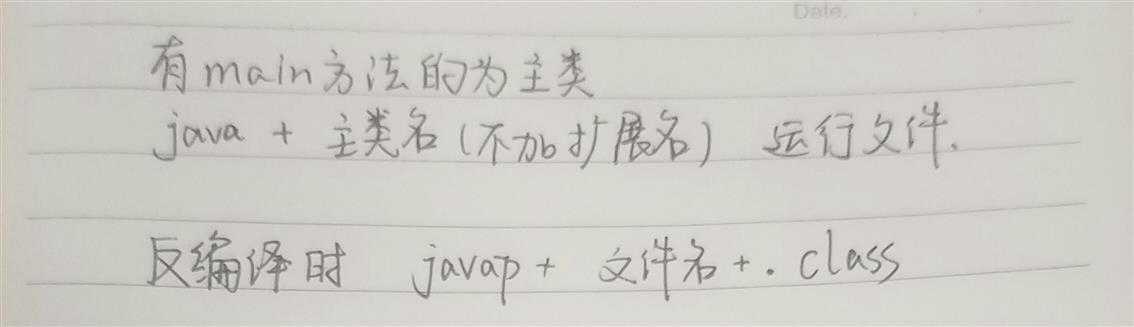 Date.
有main方法的为主类
java + 主类名(不加扩展名) 运行文件.
反编译时 javap + 文件名 + . class